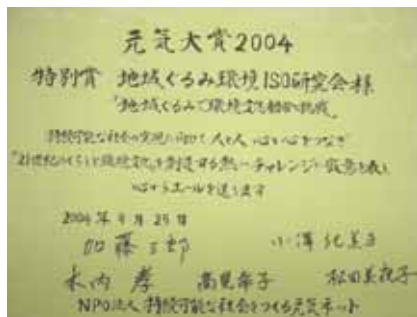 元気大賞2004
特別賞 地域ぐるみ環境ISO研究会様
"地域ぐるみで環境文化創造へ挑戦"
持続可能な社会の実現に向けて 人と人 心と心をつなぎ
"21世紀のくらしと環境文化"を創造する熱いチャレンジに敬意を表し
心からエールを送ります
2004年9月25日
加藤三郎 小澤紀美子
木内孝 高見幸子 松田美夜子
NPO法人 持続可能な社会をつくる元気ネット